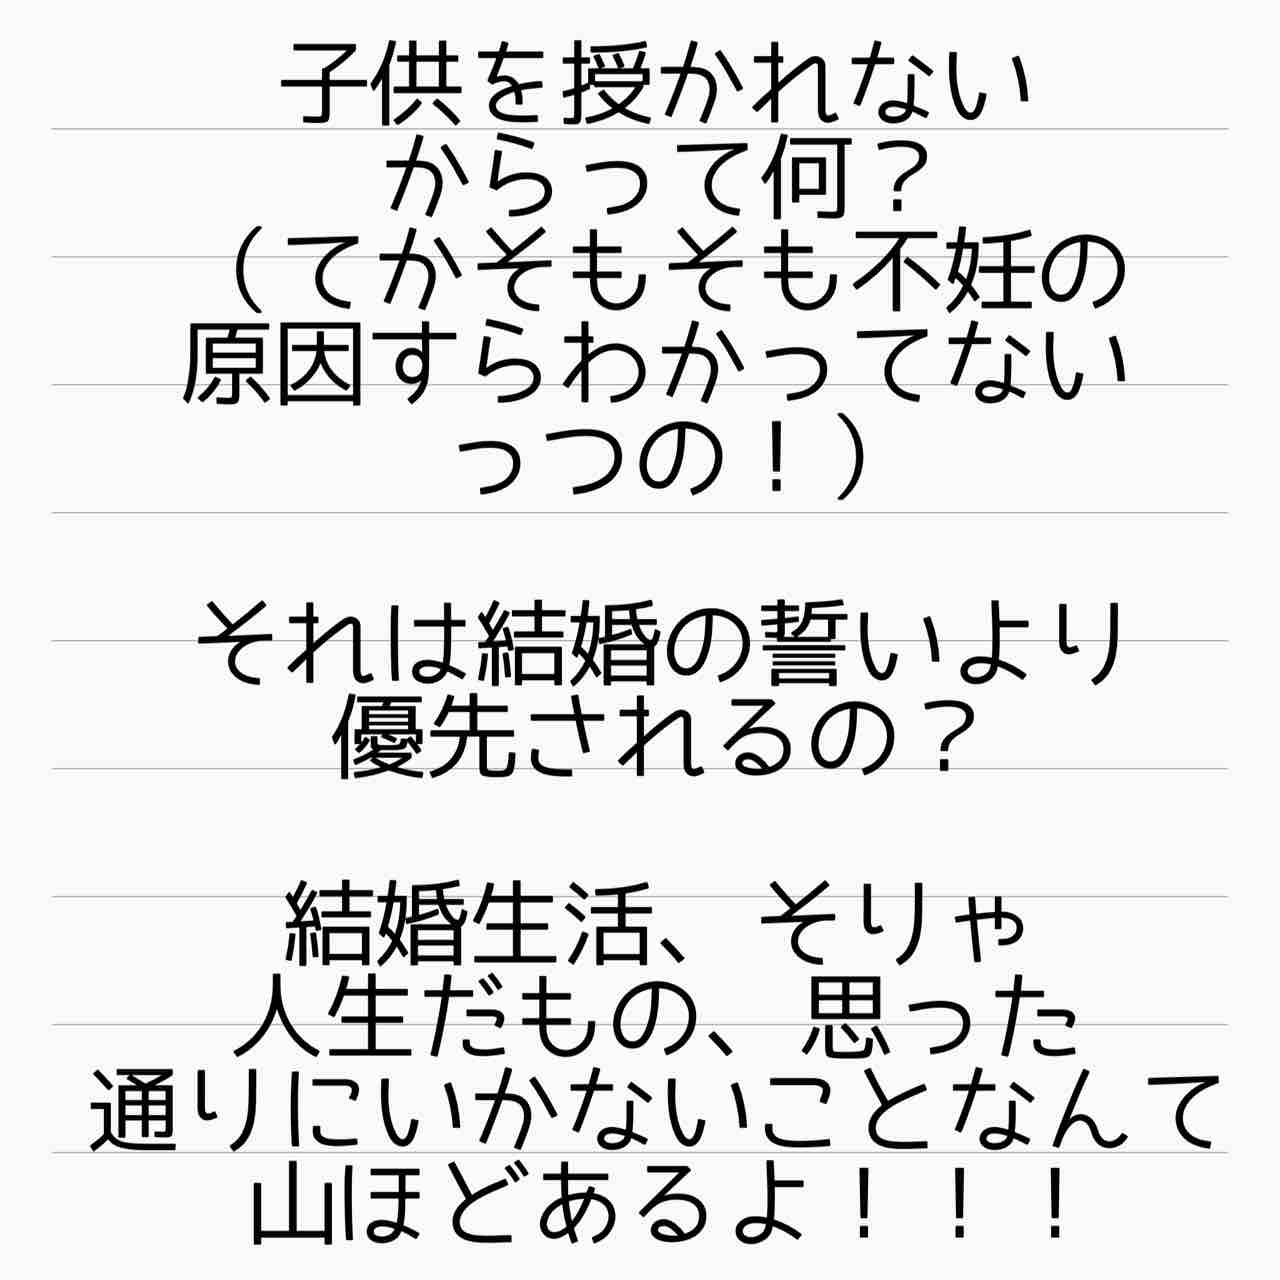 子供を授かれない
からって何？
（てかそもそも不妊の
原因すらわかってない
っつの！）
それは結婚の誓いより
優先されるの？
結婚生活、そりゃ
人生だもの、思った
通りにいかないことなんて
山ほどあるよ！！！